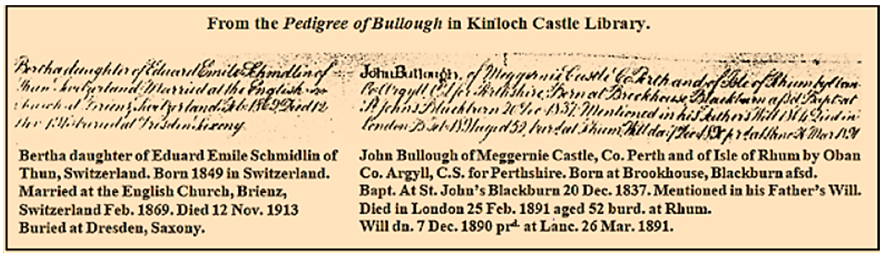 From the Pedigree of Bullough in Kinloch Castle Library.
Bertha daughter of Eduard Emile Schmidlin of
Thun, Switzerland. Married at the English
Church at Brienz, Switzerland Feb. 1869. Died 12
Nov. 1913 buried at Dresden Saxony.
John Bullough, of Meggernie Castle Co Perth and of Isle of Rhum by Oban
Co Argyll C.S. for Perthshire. Born at Brookhouse, Blackburn afsd Bapt at
St Johns Blackburn 20 Dec. 1837. Mentioned in his Father's Will Died in
London 25 Feb. 1891 aged 52, burd. at Rhum. Will da. 7 Dec. 18 pr. at Lanc 26 Mar. 1891
Bertha daughter of Eduard Emile Schmidlin of
Thun, Switzerland. Born 1849 in Switzerland.
Married at the English Church, Brienz,
Switzerland Feb. 1869. Died 12 Nov. 1913
Buried at Dresden, Saxony.
John Bullough of Meggernie Castle, Co. Perth and of Isle of Rhum by Oban
Co. Argyll, C.S. for Perthshire. Born at Brookhouse, Blackburn afsd.
Bapt. At St. John's Blackburn 20 Dec. 1837. Mentioned in his Father's Will.
Died in London 25 Feb. 1891 aged 52 burd. at Rhum.
Will dn. 7 Dec. 1890 prd. at Lanc. 26 Mar. 1891.